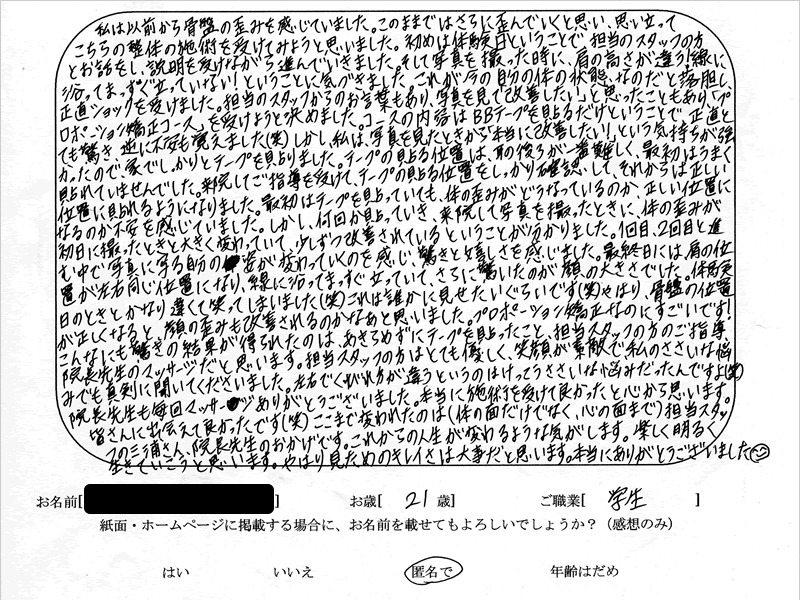 私は以前から骨盤の歪みを感じていました。このままではさらに歪んでいくと思い、思い立って
こちらの整体の施術を受けてみようと思いました。初めは体験日ということで、担当のスタッフの方
とお話をし、説明を受けながら進んでいきました。そして写真を撮った時に、肩の高さが違う!線に
沿ってまっすぐ立っていない!ということに気づきました。これが今の自分の体の状態なのだと落胆し、
正直ショックを受けました。担当のスタッフからのお言葉もあり、写真を見て「改善したい」と思ったこともあり、「プ
ロポーション矯正コース」を受けようと決めました。コースの内容はBBテープを貼るだけということで、正直と
ても驚き、逆に不安も覚えました(笑)しかし、私は、写真を見たときから「本当に改善したい!」という気持ちが強
かったので、家でしっかりとテープを貼りました。テープの貼る位置は、耳の後ろが一番難しく、最初はうまく
貼れていませんでした。来院してご指導を受けて、テープの貼る位置をしっかり確認して、それからは正しい
位置に貼れるようになりました。最初はテープを貼っていても、体の歪みがどうなっているのか、正しい位置に
なるのか不安を感じていました。しかし、何回か貼っていき、来院して写真を撮ったときに、体の歪みが
初日に撮ったときと大きく変わっていて、少しずつ改善されているということが分かりました。1回目、2回目と進
む中で写真に写る自分の姿が変わっていくのを感じ、驚きと嬉しさを感じました。最終日には、肩の位
置が左右同じ位置になり、線に沿ってまっすぐ立っていて、さらに驚いたのが顔の大きさでした。体験
日のときとかなり違くて笑ってしまいました(笑)これは誰かに見せたいぐらいです(笑)やはり、骨盤の位置
が正しくなると、顔の歪みも改善されるのかなあと思いました。プロポーション矯正なのにすごいです!
こんなにも驚きの結果が得られたのは、あきらめずにテープを貼ったこと、担当スタッフの方のご指導、
院長先生のマッサージだと思います。担当スタッフの方はとても優しく、笑顔が素敵で私のささいな悩
みでも真剣に聞いてくださいました。左右でくびれ方が違うというのはけっこうささいな悩みだったんですよ(笑)
院長先生も毎回マッサージありがとうございました。本当に施術を受けて良かったと心から思います。
皆さんに出会えて良かったです(笑)ここまで変われたのは(体の面だけでなく、心の面まで)担当スタッ
フの三浦さん、院長先生のおかげです。これからの人生が変わるような気がします。楽しく明るく
生きていこうと思います。やはり見ためのキレイさは大事だと思います。本当にありがとうございました☺
お名前[ ] お歳[ 21 歳] ご職業[ 学生 ]
紙面・ホームページに掲載する場合に、お名前を載せてもよろしいでしょうか?(感想のみ)
はい いいえ 匿名で 年齢はだめ